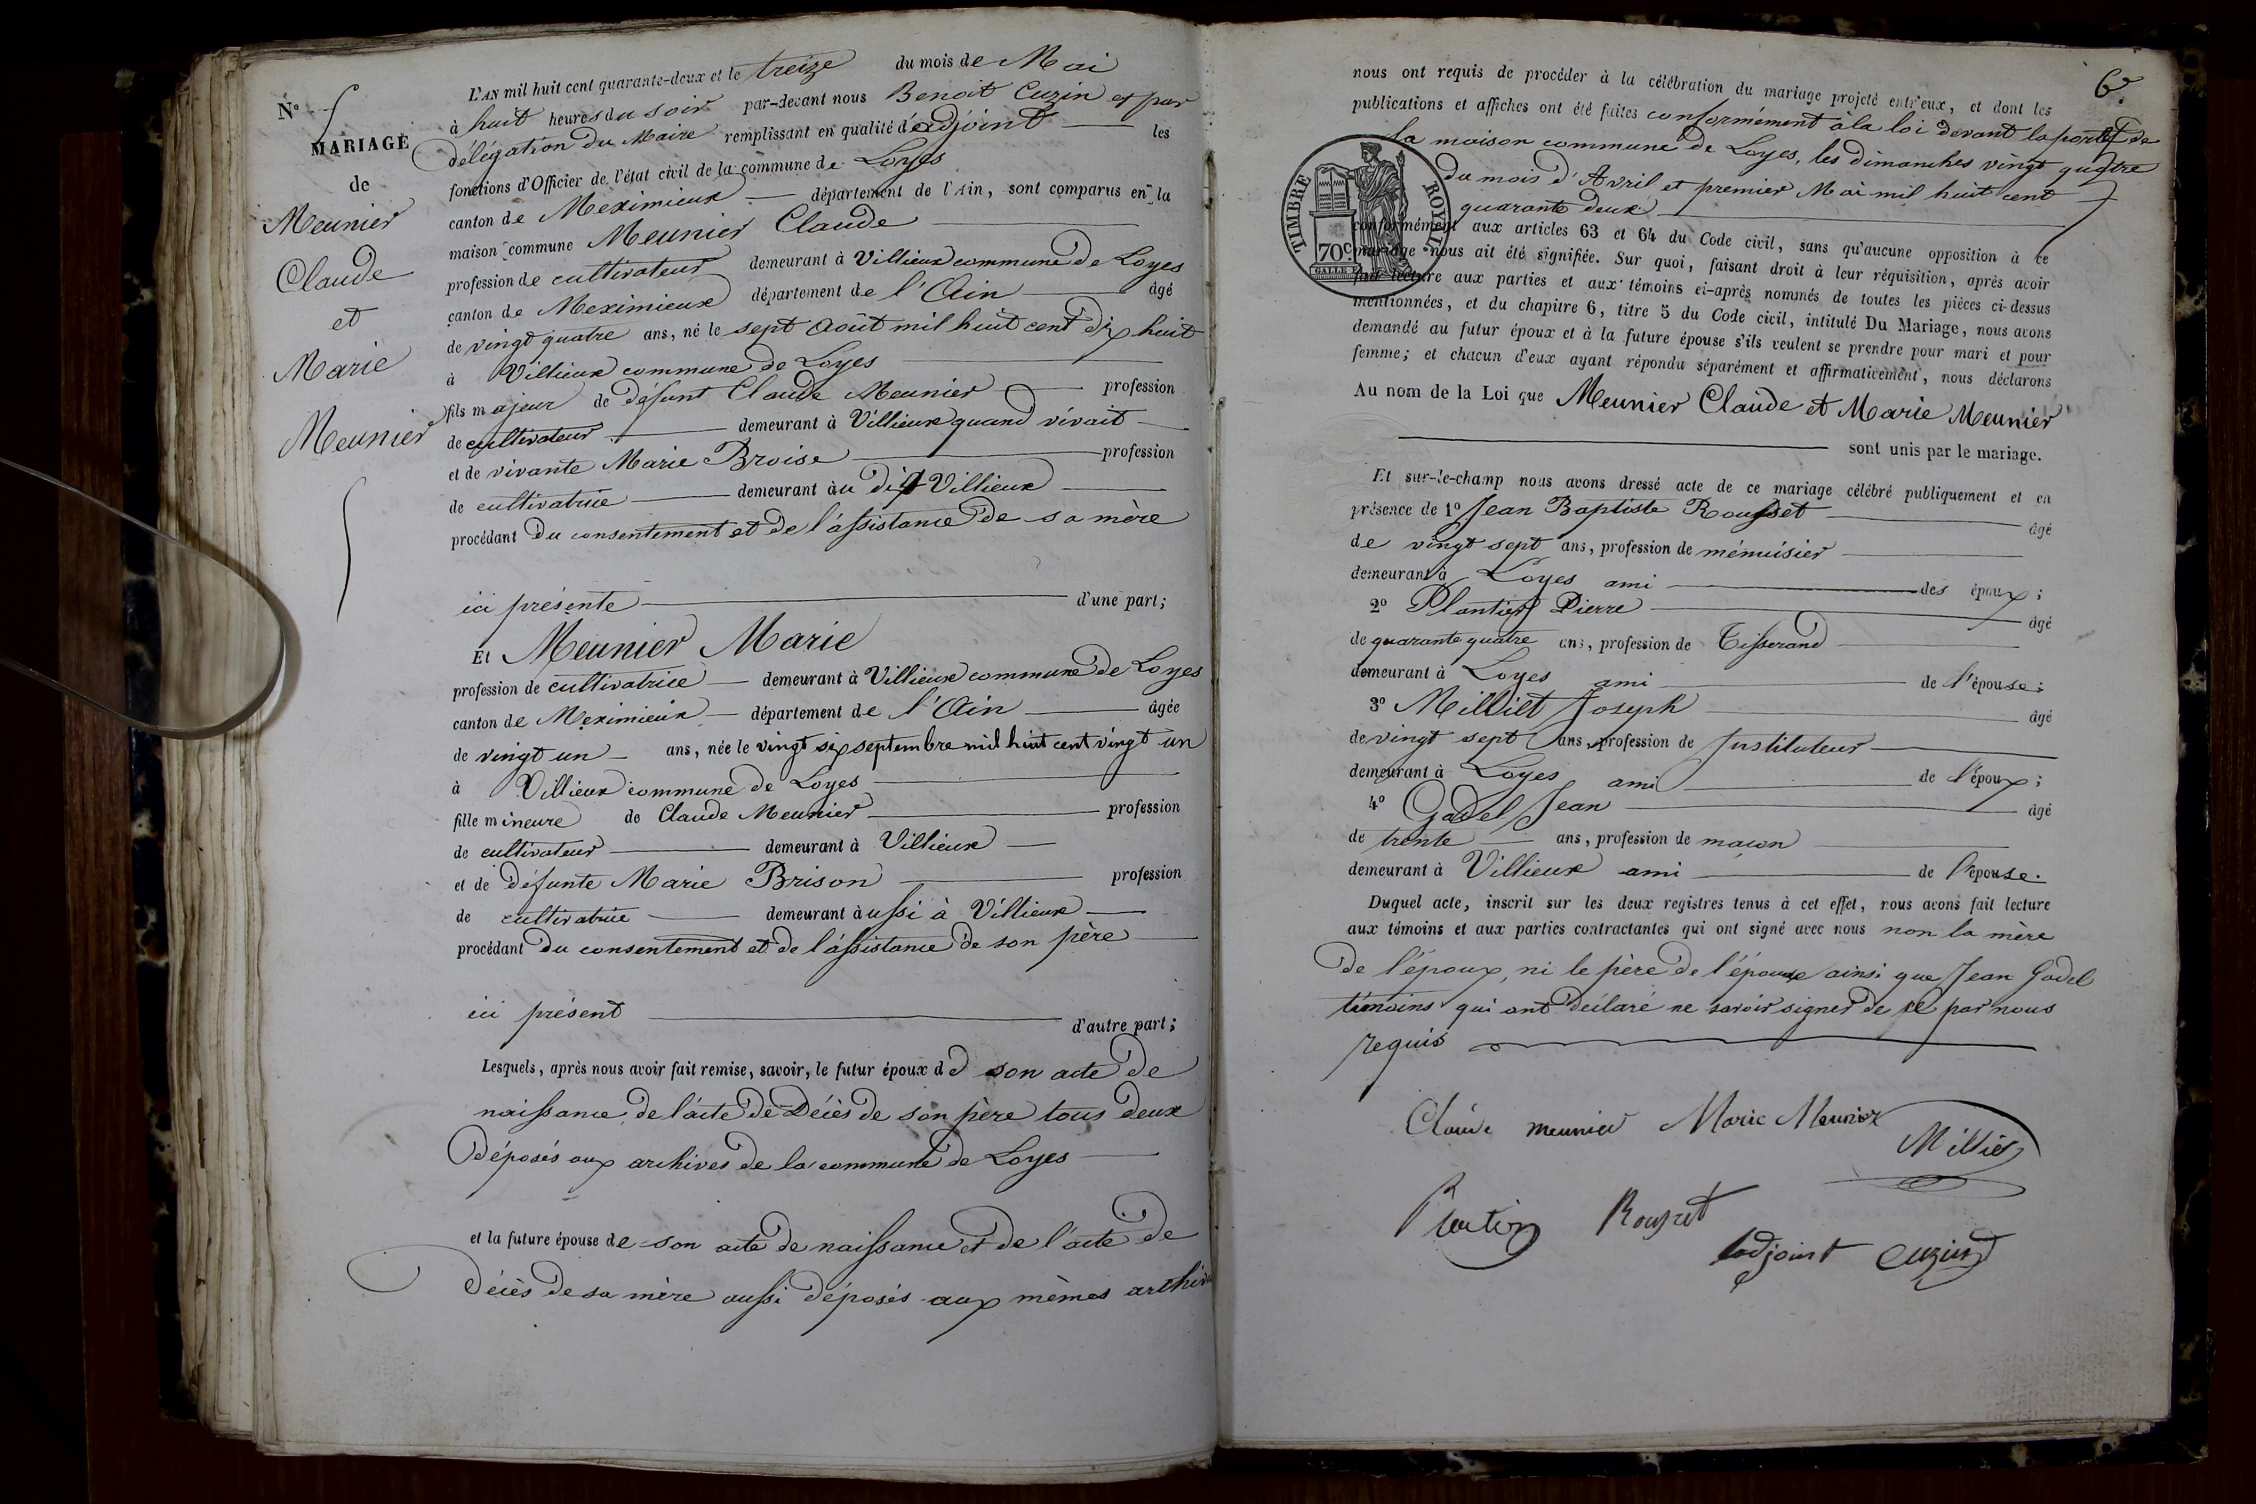 N°
MARIAGE
de
Meunier
Claude
et
Marie
Meunier
L'AN mil huit cent quarante-deux et le treize du mois de Mai
à huit heures du soir par-devant nous Benoit Cuzin et par
délégation du Maire remplissant en qualité d'adjoint les
fonctions d'Officier de l'état civil de la commune de Loyes
canton de Meximieux département de l'Ain, sont comparus en la
maison commune Meunier Claude
profession de cultivateur demeurant à Villieux commune de Loyes
canton de Meximieux département de l'Ain âgé
de vingt quatre ans, né le sept Août mil huit cent dix huit
à Villieux commune de Loyes
fils majeur de défunt Claude Meunier profession
de cultivateur demeurant à Villieux quand vivait
et de vivante Marie Broise profession
de cultivatrice demeurant àu dit Villieux
procédant du consentement et de l'assistance de sa mère
ici présente d'une part;
Et Meunier Marie
profession de cultivatrice demeurant à Villieux commune de Loyes
canton de Meximieux département de l'Ain âgée
de vingt un ans, née le vingt six septembre mil huit cent vingt un
à Villieux commune de Loyes
fille mineure de Claude Meunier profession
de cultivateur demeurant à Villieux
et de défunte Marie Brison profession
de cultivatrice demeurant àussi à Villieux
procédant du consentement et de l'assistance de son père
ici présent d'autre part;
Lesquels, après nous avoir fait remise, savoir, le futur époux de son acte de
naissance, de l'acte de Décès de son père tous deux
déposés aux archives de la commune de Loyes
et la future épouse de son acte de naissance et de l'acte de
décès de sa mère aussi déposés aux mêmes archives
6
nous ont requis de procéder à la célébration du mariage projeté entr'eux, et dont les
publications et affiches ont été faites conformément à la loi devant la porte de
la maison commune de Loyes, les dimanches vingt quatre
du mois d'Avril et premier Mai mil huit cent
quarante deux
TIMBRE ROYAL
70c
conformément aux articles 63 et 64 du Code civil, sans qu'aucune opposition à ce
mariage nous ait été signifiée. Sur quoi, faisant droit à leur réquisition, après avoir
fait lecture aux parties et aux témoins ci-après nommés de toutes les pièces ci-dessus
mentionnées, et du chapitre 6, titre 5 du Code civil, intitulé Du Mariage, nous avons
demandé au futur époux et à la future épouse s'ils veulent se prendre pour mari et pour
femme; et chacun d'eux ayant répondu séparément et affirmativement, nous déclarons
Au nom de la Loi que Meunier Claude et Marie Meunier
sont unis par le mariage.
Et sur-le-champ nous avons dressé acte de ce mariage célébré publiquement et en
présence de 1° Jean Baptiste Rousset âgé
de vingt sept ans, profession de ménuisier
demeurant à Loyes ami des époux;
2° Plantier Pierre âgé
de quarante quatre ans, profession de Tisserand
demeurant à Loyes ami de l'épouse;
3° Milliet Joseph âgé
de vingt sept ans, profession de Instituteur
demeurant à Loyes ami de l'époux;
4° Gadel Jean âgé
de trente ans, profession de maçon
demeurant à Villieux ami de l'épouse.
Duquel acte, inscrit sur les deux registres tenus à cet effet, nous avons fait lecture
aux témoins et aux parties contractantes qui ont signé avec nous non la mère
de l'époux, ni le père de l'épouse ainsi que Jean Gadel
témoins qui ont déclaré ne savoir signer de ce par nous
requis
Claude meunier Marie Meunier
Milliet
Plantier Rousset
adjoint Cuzin